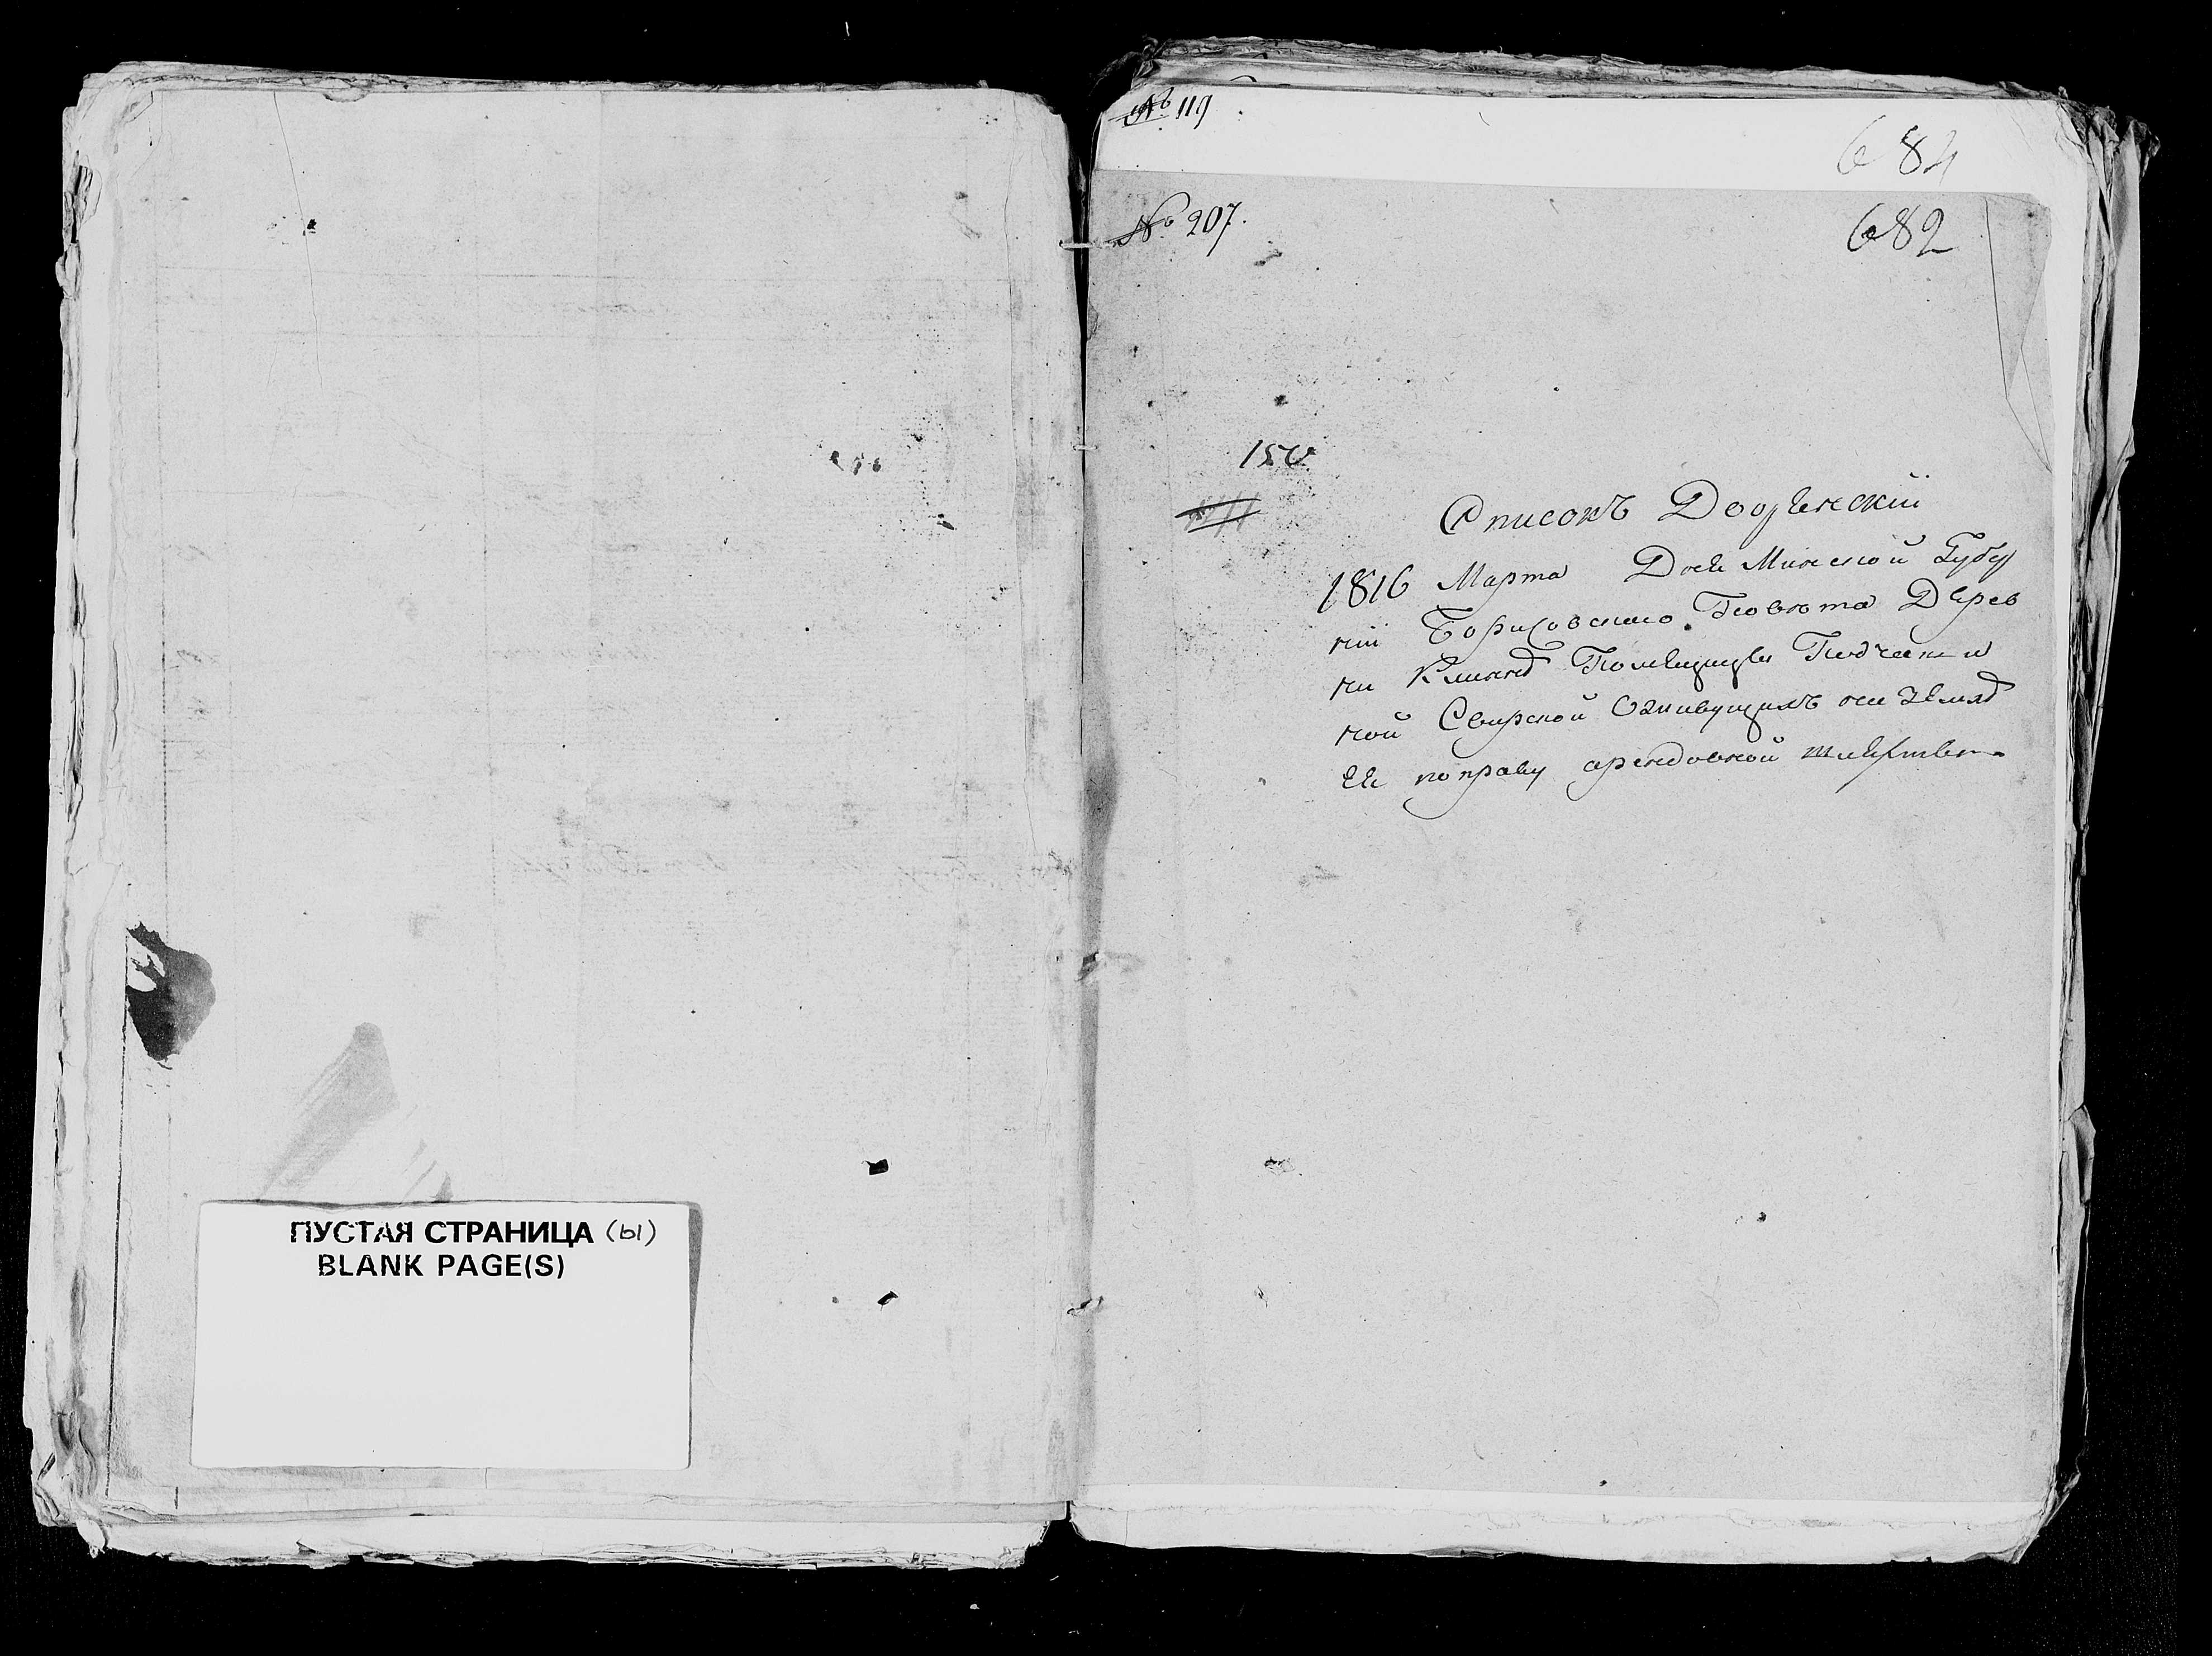 ПУСТАЯ СТРАНИЦА (ы)
BLANK PAGE(S)
№ 119
684
№ 207.
682
150
Списокъ Дворенскій
1816 Марта Дня Минской Губер
ніи Борисовскаго Повѣта Дерев
ни Клинъ Помещицы Подчаши
ной Свирской Оживущихъ на Землѣ
Ее по праву арендовной